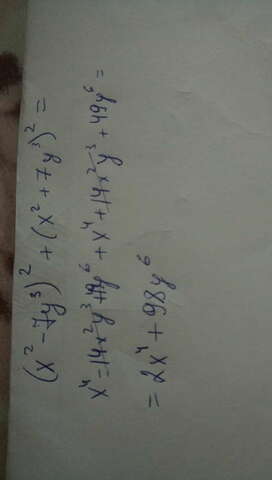 (x² - 7y³)² + (x² + 7y³)² =
x⁴ - 14x²y³ + 49y⁶ + x⁴ + 14x²y³ + 49y⁶ =
= 2x⁴ + 98y⁶